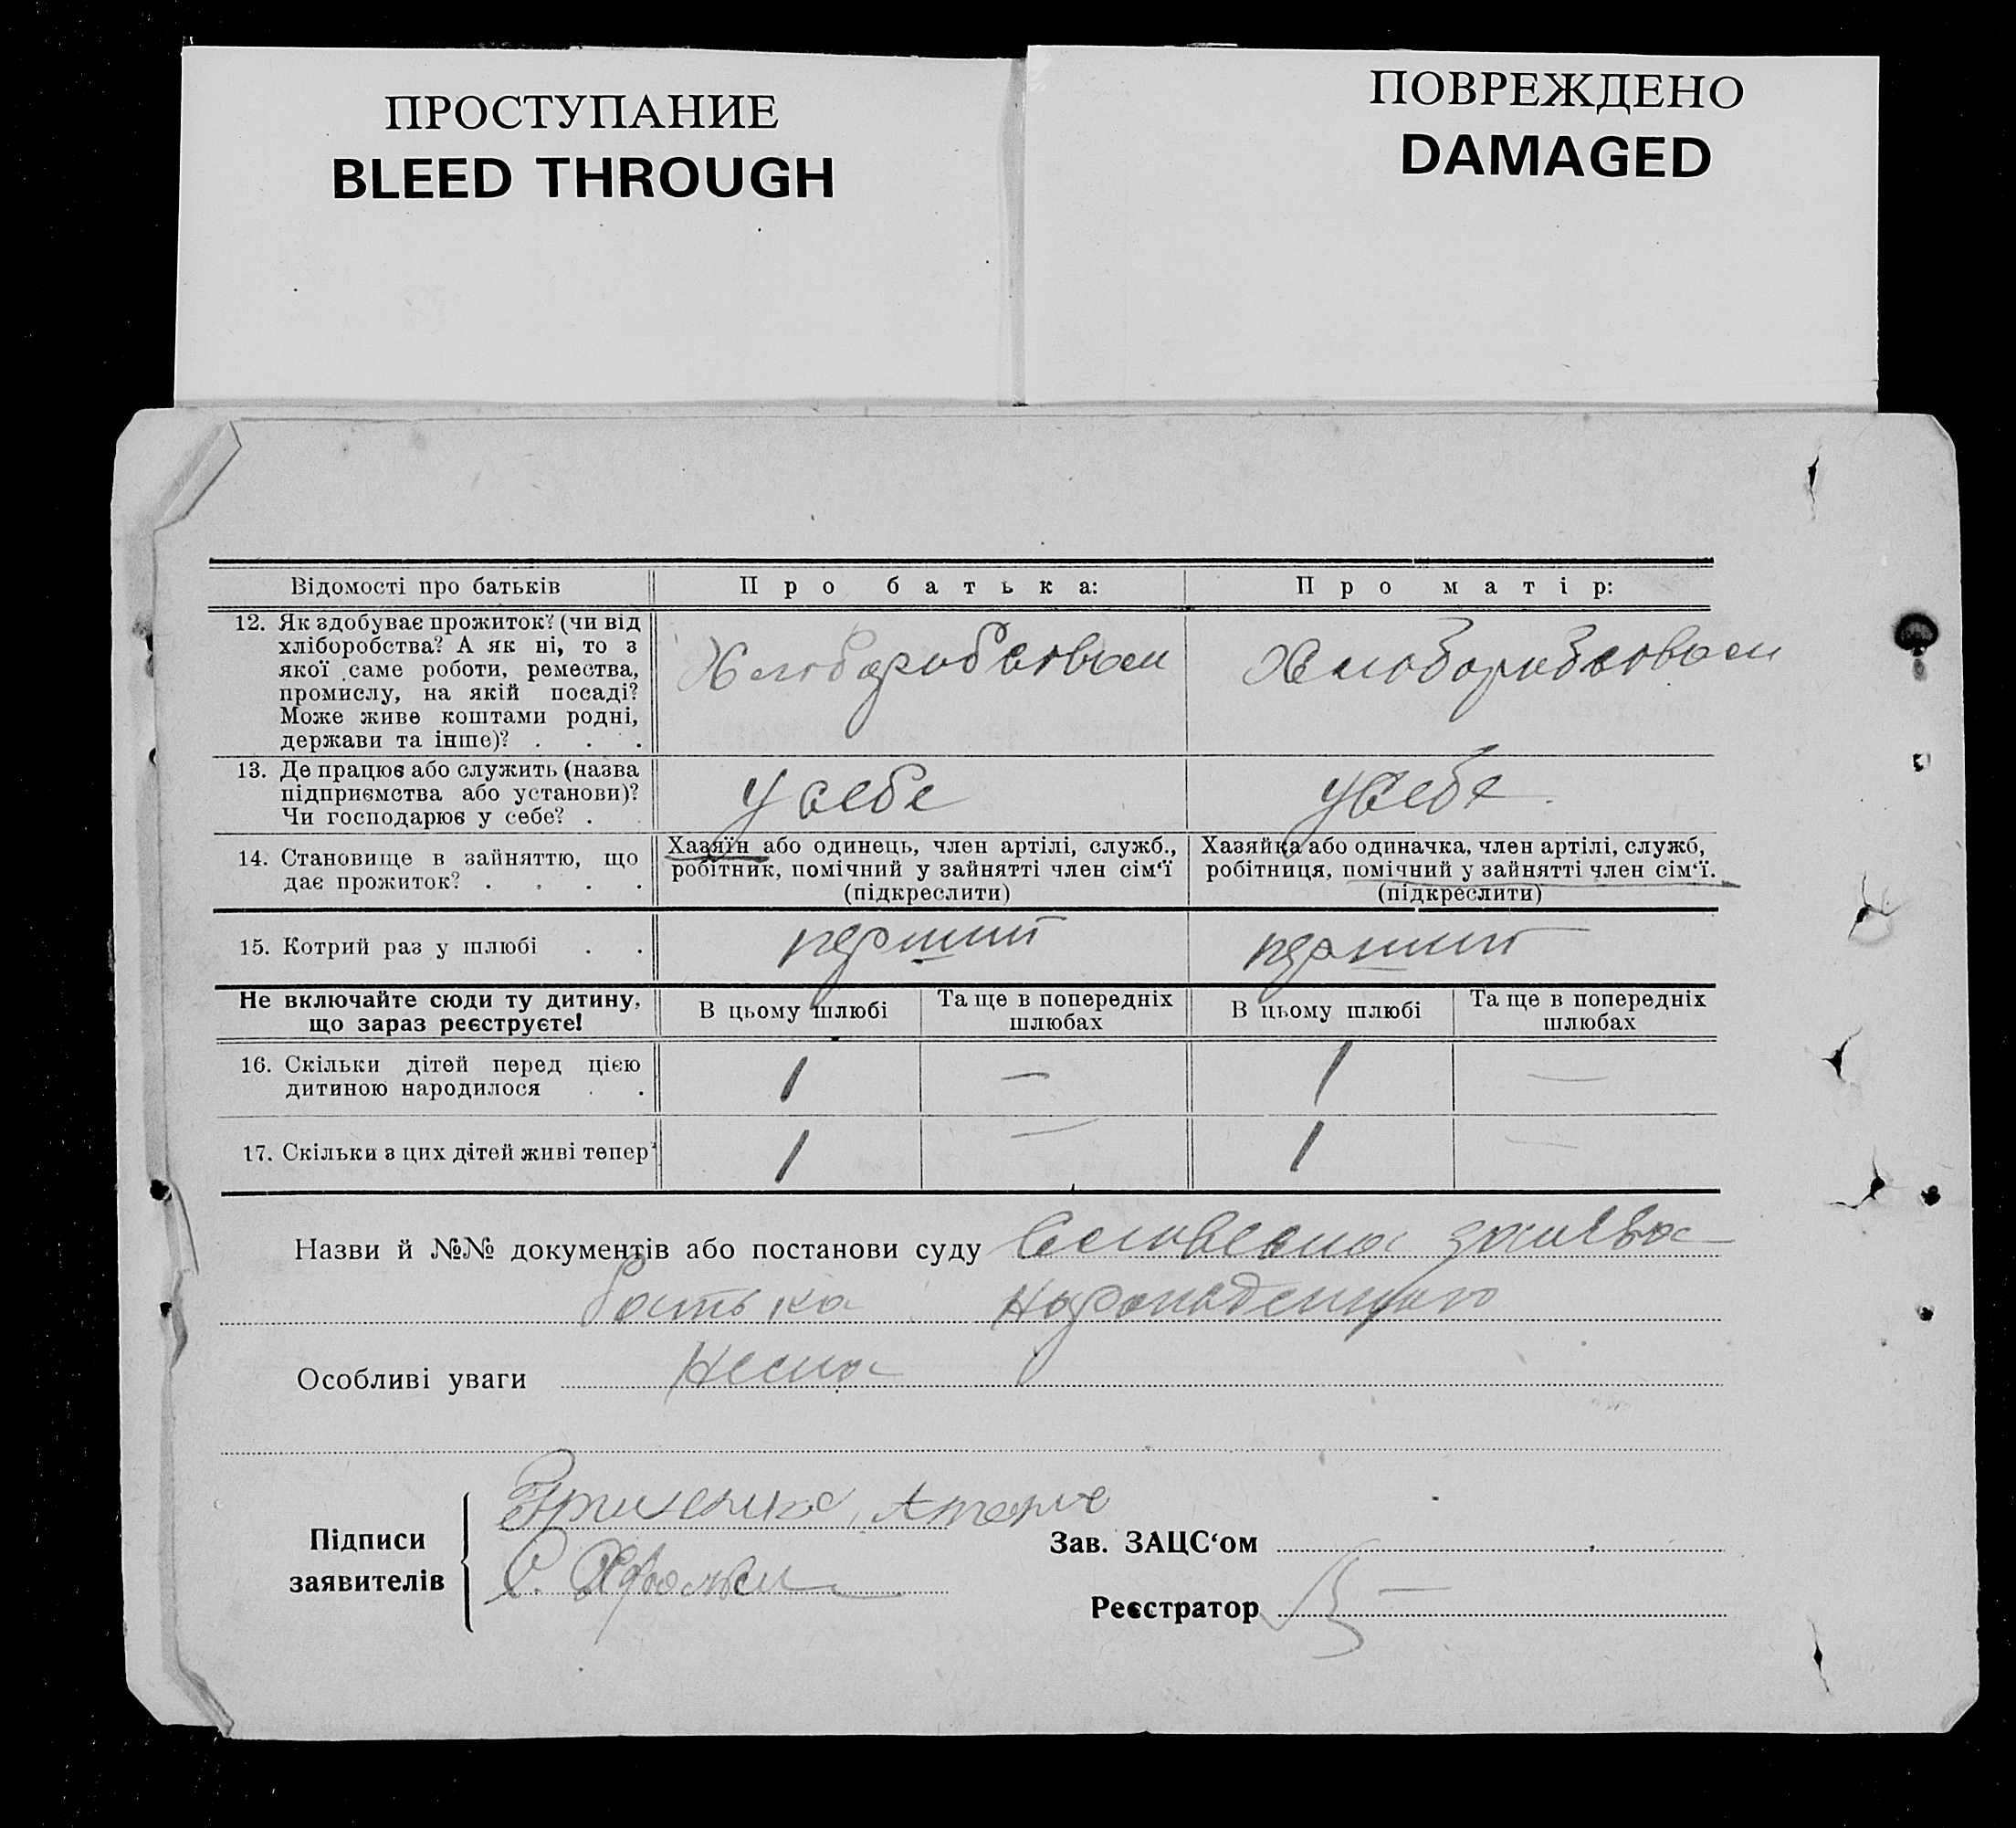 ПРОСТУПАНИЕ
BLEED THROUGH
ПОВРЕЖДЕНО
DAMAGED
Відомості про батьків Про батька: Про матір:
12. Як здобуває прожиток? (чи від
хліборобства? А як ні, то з
якої саме роботи, ремества,
промислу, на якій посаді?
Може живе коштами родні,
держави та інше)? . . .
Хлюборобствоми Хлюборобствоми
13. Де працює або служить (назва
підприємства або установи)?
Чи господарює у себе? .
у себе у себе
14. Становище в зайняттю, що
дає прожиток? . . . .
Хазяїн або одинець, член артілі, служб.,
робітник, помічний у зайнятті член сім‘ї
(підкреслити)
Хазяйка або одиначка, член артілі, служб,
робітниця, помічний у зайнятті член сім‘ї.
(підкреслити)
15. Котрий раз у шлюбі . . перший перший
Не включайте сюди ту дитину,
що зараз реєструєте!
В цьому шлюбі Та ще в попередніх шлюбах В цьому шлюбі Та ще в попередніх шлюбах
16. Скільки дітей перед цією
дитиною народилося . .
1 — 1 —
17. Скільки з цих дітей живі тепер 1 — 1 —
Назви й №№ документів або постанови суду Словесна заява
батька
Особливі уваги Нема
Підписи
заявителів
Зав. ЗАЦС‘ом
Реєстратор